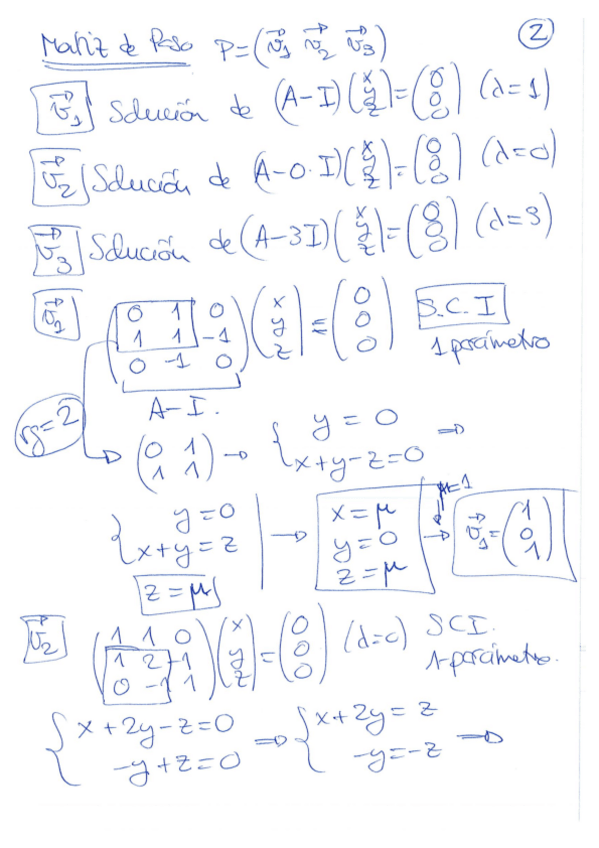 ②
Matriz de Paso P=(v⃗₁ v⃗₂ v⃗₃)
v⃗₁ Solución de (A-I)(x y z)=(0 0 0) (λ=1)
v⃗₂ Solución de (A-0·I)(x y z)=(0 0 0) (λ=0)
v⃗₃ Solución de (A-3I)(x y z)=(0 0 0) (λ=3)
v⃗₁ (0 1 0 / 1 1 -1 / 0 -1 0)(x y z)=(0 0 0) S.C.I
1 parámetro
A-I.
rg=2
→ (0 1 / 1 1) → { y = 0 / x+y-z=0 ⇒
{ y=0 / x+y=z | → x=μ / y=0 / z=μ → μ=1 v⃗₁=(1 0 1)
z=μ
v⃗₂ (1 1 0 / 1 2 -1 / 0 -1 1)(x y z)=(0 0 0) (λ=0) SCI.
1-parámetro.
{ x+2y-z=0 / -y+z=0 ⇒ { x+2y=z / -y=-z ⇒